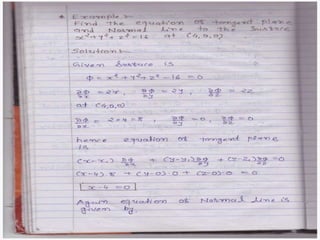 * Example :-
Find the equation of tangent plane
and Normal line to the surface
x²+y²+z²=16 at (4,0,0)
Solution :-
Given surface is
Φ = x²+y²+z²-16 = 0
∂Φ/∂x = 2x, ∂Φ/∂y = 2y, ∂Φ/∂z = 2z
at (4,0,0)
∂Φ/∂x = 2×4 = 8, ∂Φ/∂y = 0, ∂Φ/∂z = 0
hence equation of tangent plane
is
(x-x₁) ∂Φ/∂x + (y-y₁) ∂Φ/∂y + (z-z₁) ∂Φ/∂z = 0
(x-4).8 + (y-0).0 + (z-0).0 = 0
x-4 = 0
Again equation of Normal line is
given by,